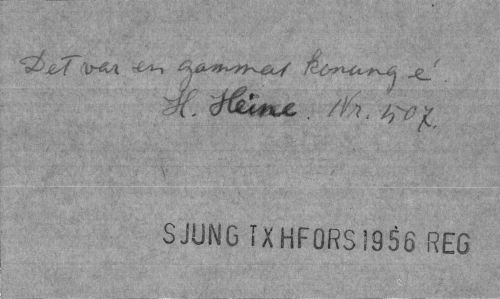 Det var en gammal konung é.
H. Heine. Nr. 507.
SJUNG IX HFORS 1956 REG